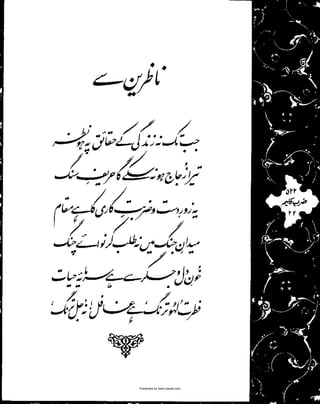 ناظرین سے
جب تک نہ زندگی کے حقائق پہ ہو نظر
تیرا زجاج ہو نہ سکے گا حریفِ سنگ
یہ زورِ دست و ضربتِ کاری کا ہے مقام
میدانِ جنگ میں نہ طلب کر نوائے چنگ
خونِ دل و جگر سے ہے سرمایۂ حیات
فطرت 'لہو ترنگ' ہے غافل! نہ 'جل ترنگ'
۵۲۲
ضربِ کلیم
۲۲